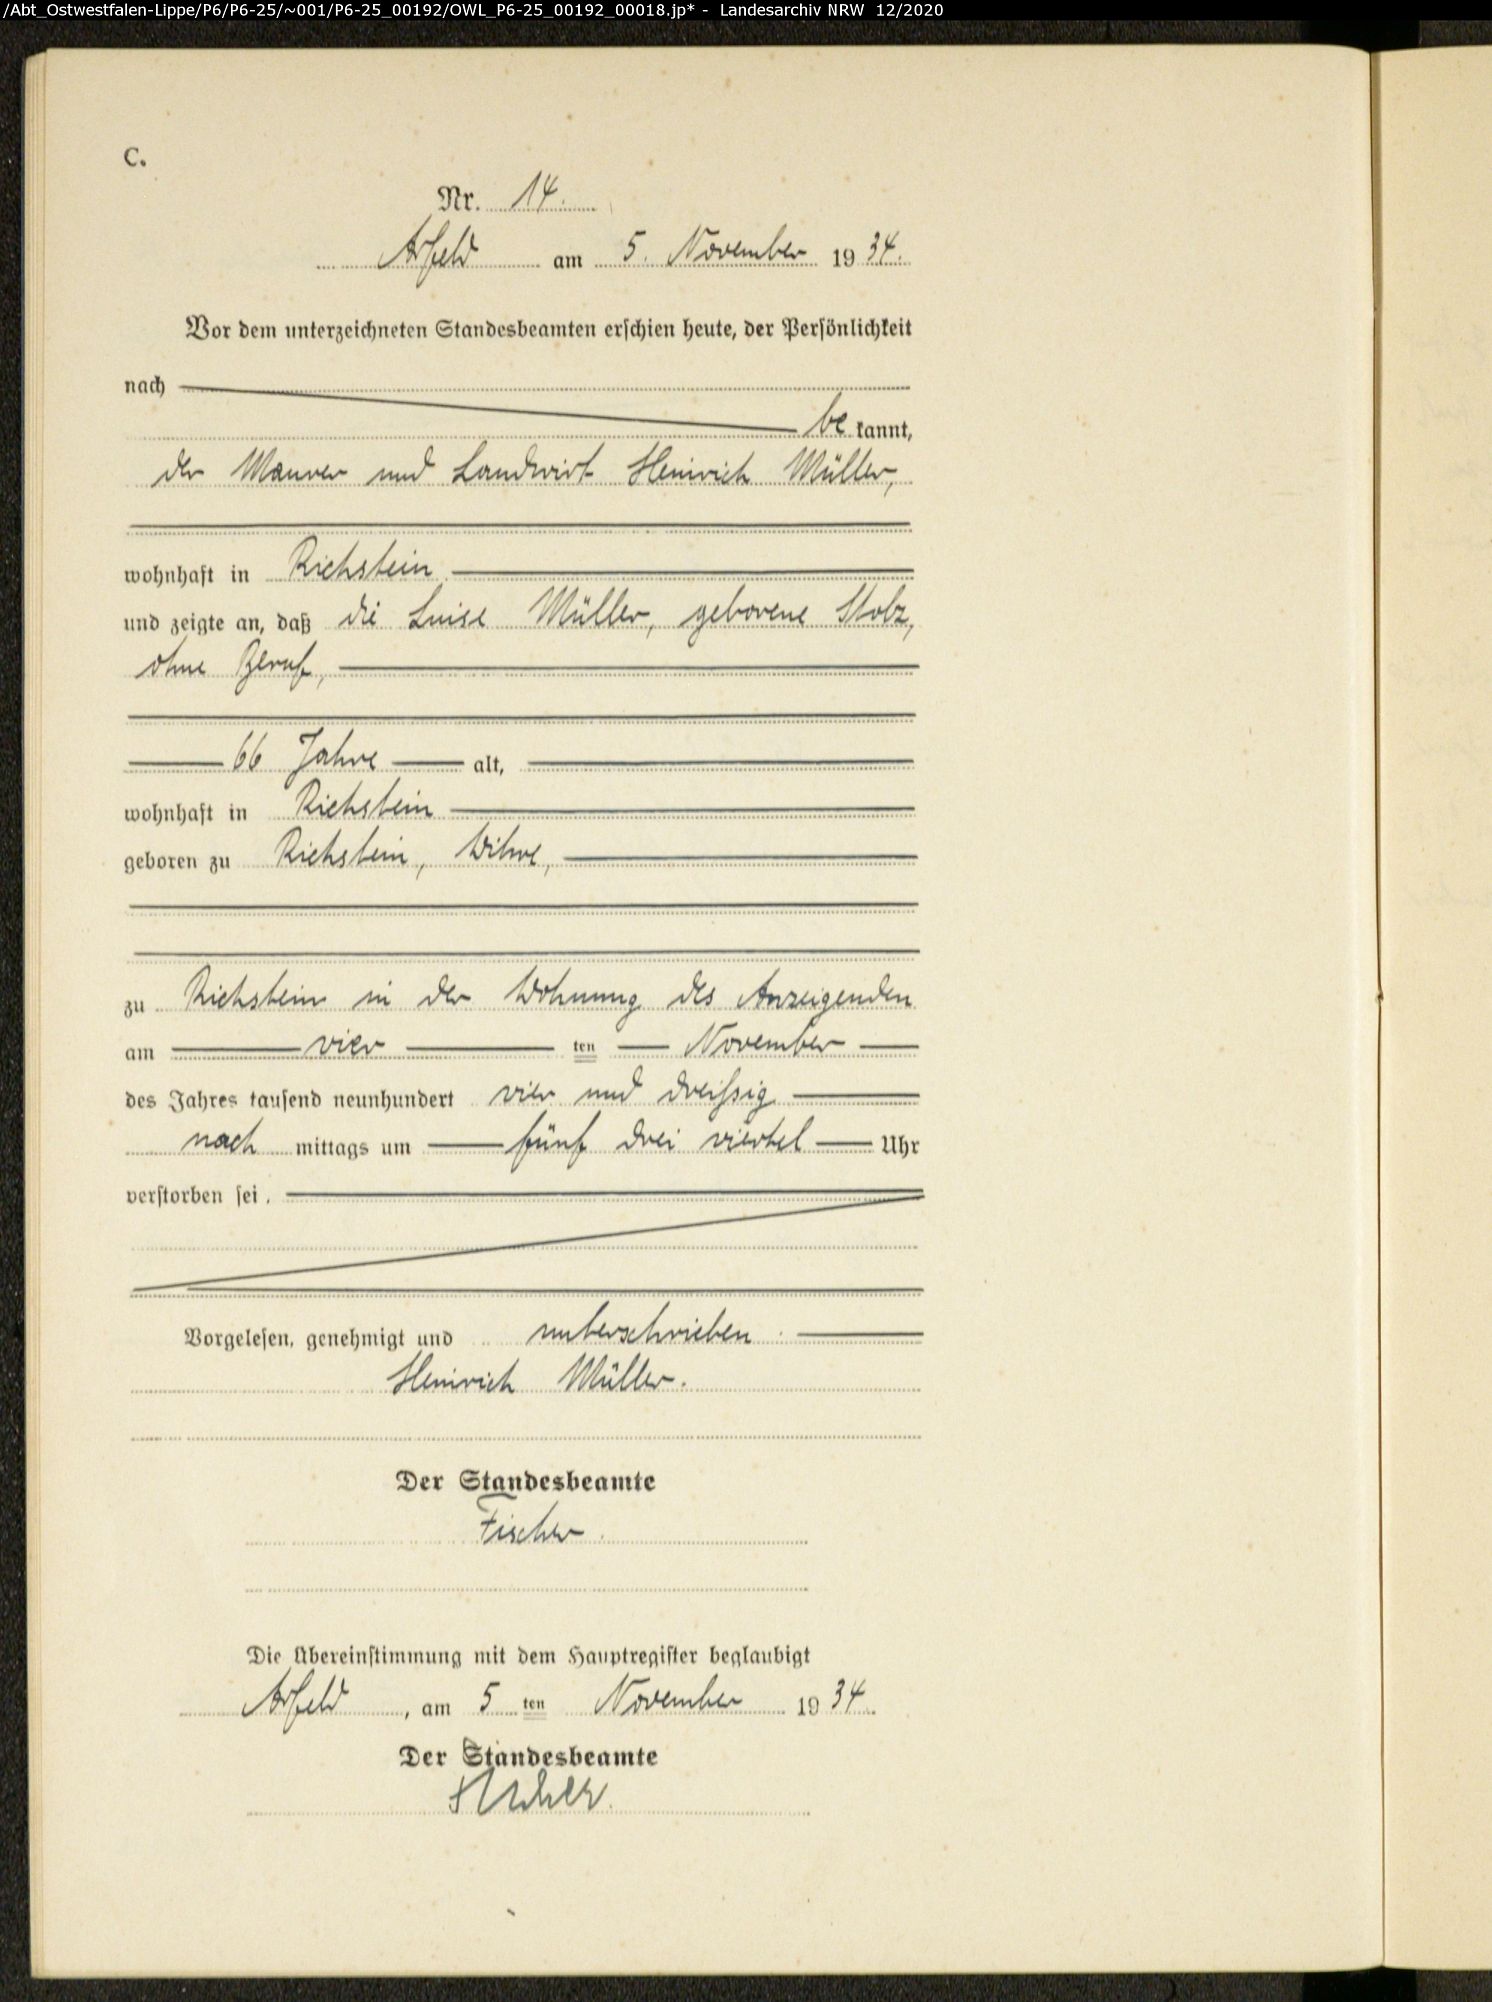 /Abt_Ostwestfalen-Lippe/P6/P6-25/~001/P6-25_00192/OWL_P6-25_00192_00018.jp* - Landesarchiv NRW 12/2020
C.
Nr. 14.
Arfeld am 5. November 1934.
Vor dem unterzeichneten Standesbeamten erschien heute, der Persönlichkeit
nach
be kannt,
der Maurer und Landwirt Heinrich Müller,
wohnhaft in Richstein
und zeigte an, daß die Luise Müller, geborene Stolz,
ohne Beruf,
66 Jahre alt,
wohnhaft in Richstein
geboren zu Richstein, Witwe,
zu Richstein in der Wohnung des Anzeigenden
am vier ten November
des Jahres tausend neunhundert vier und dreißig
nach mittags um fünf drei viertel Uhr
verstorben sei.
Vorgelesen, genehmigt und unterschrieben
Heinrich Müller.
Der Standesbeamte
Fischer.
Die Übereinstimmung mit dem Hauptregister beglaubigt
Arfeld, am 5 ten November 1934.
Der Standesbeamte
Fischer.